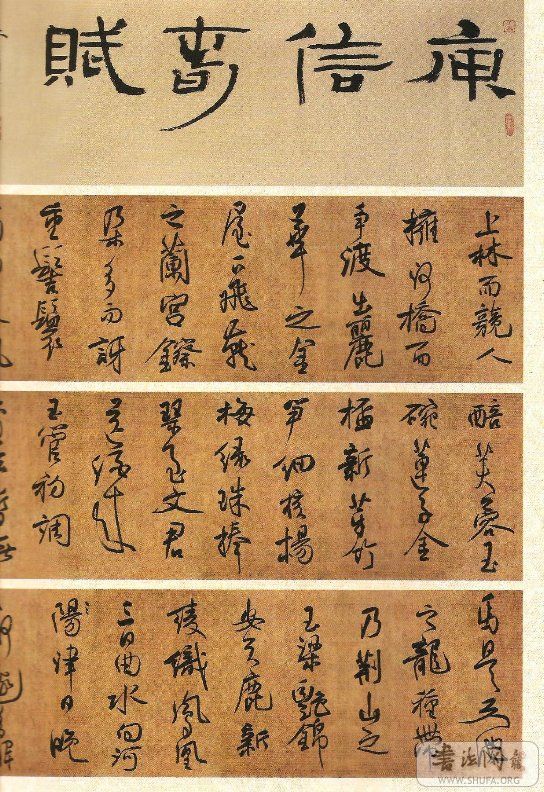 庾信春賦
上林而競入
擁河橋而
爭渡出麗
華之金
屋下飛燕
之蘭宮釵
朵多而訝
重髻鬟
醅芙蓉玉
碗蓮子金
杯新芽竹
笋細核楊
梅緑珠捧
琴至文君
送酒來
玉管初調
馬是天池
之龍種帶
乃荊山之
玉梁艷錦
安天鹿新
綾織鳳凰
三日曲水向河
陽津日晚
書法网
WWW.SHUFA.ORG